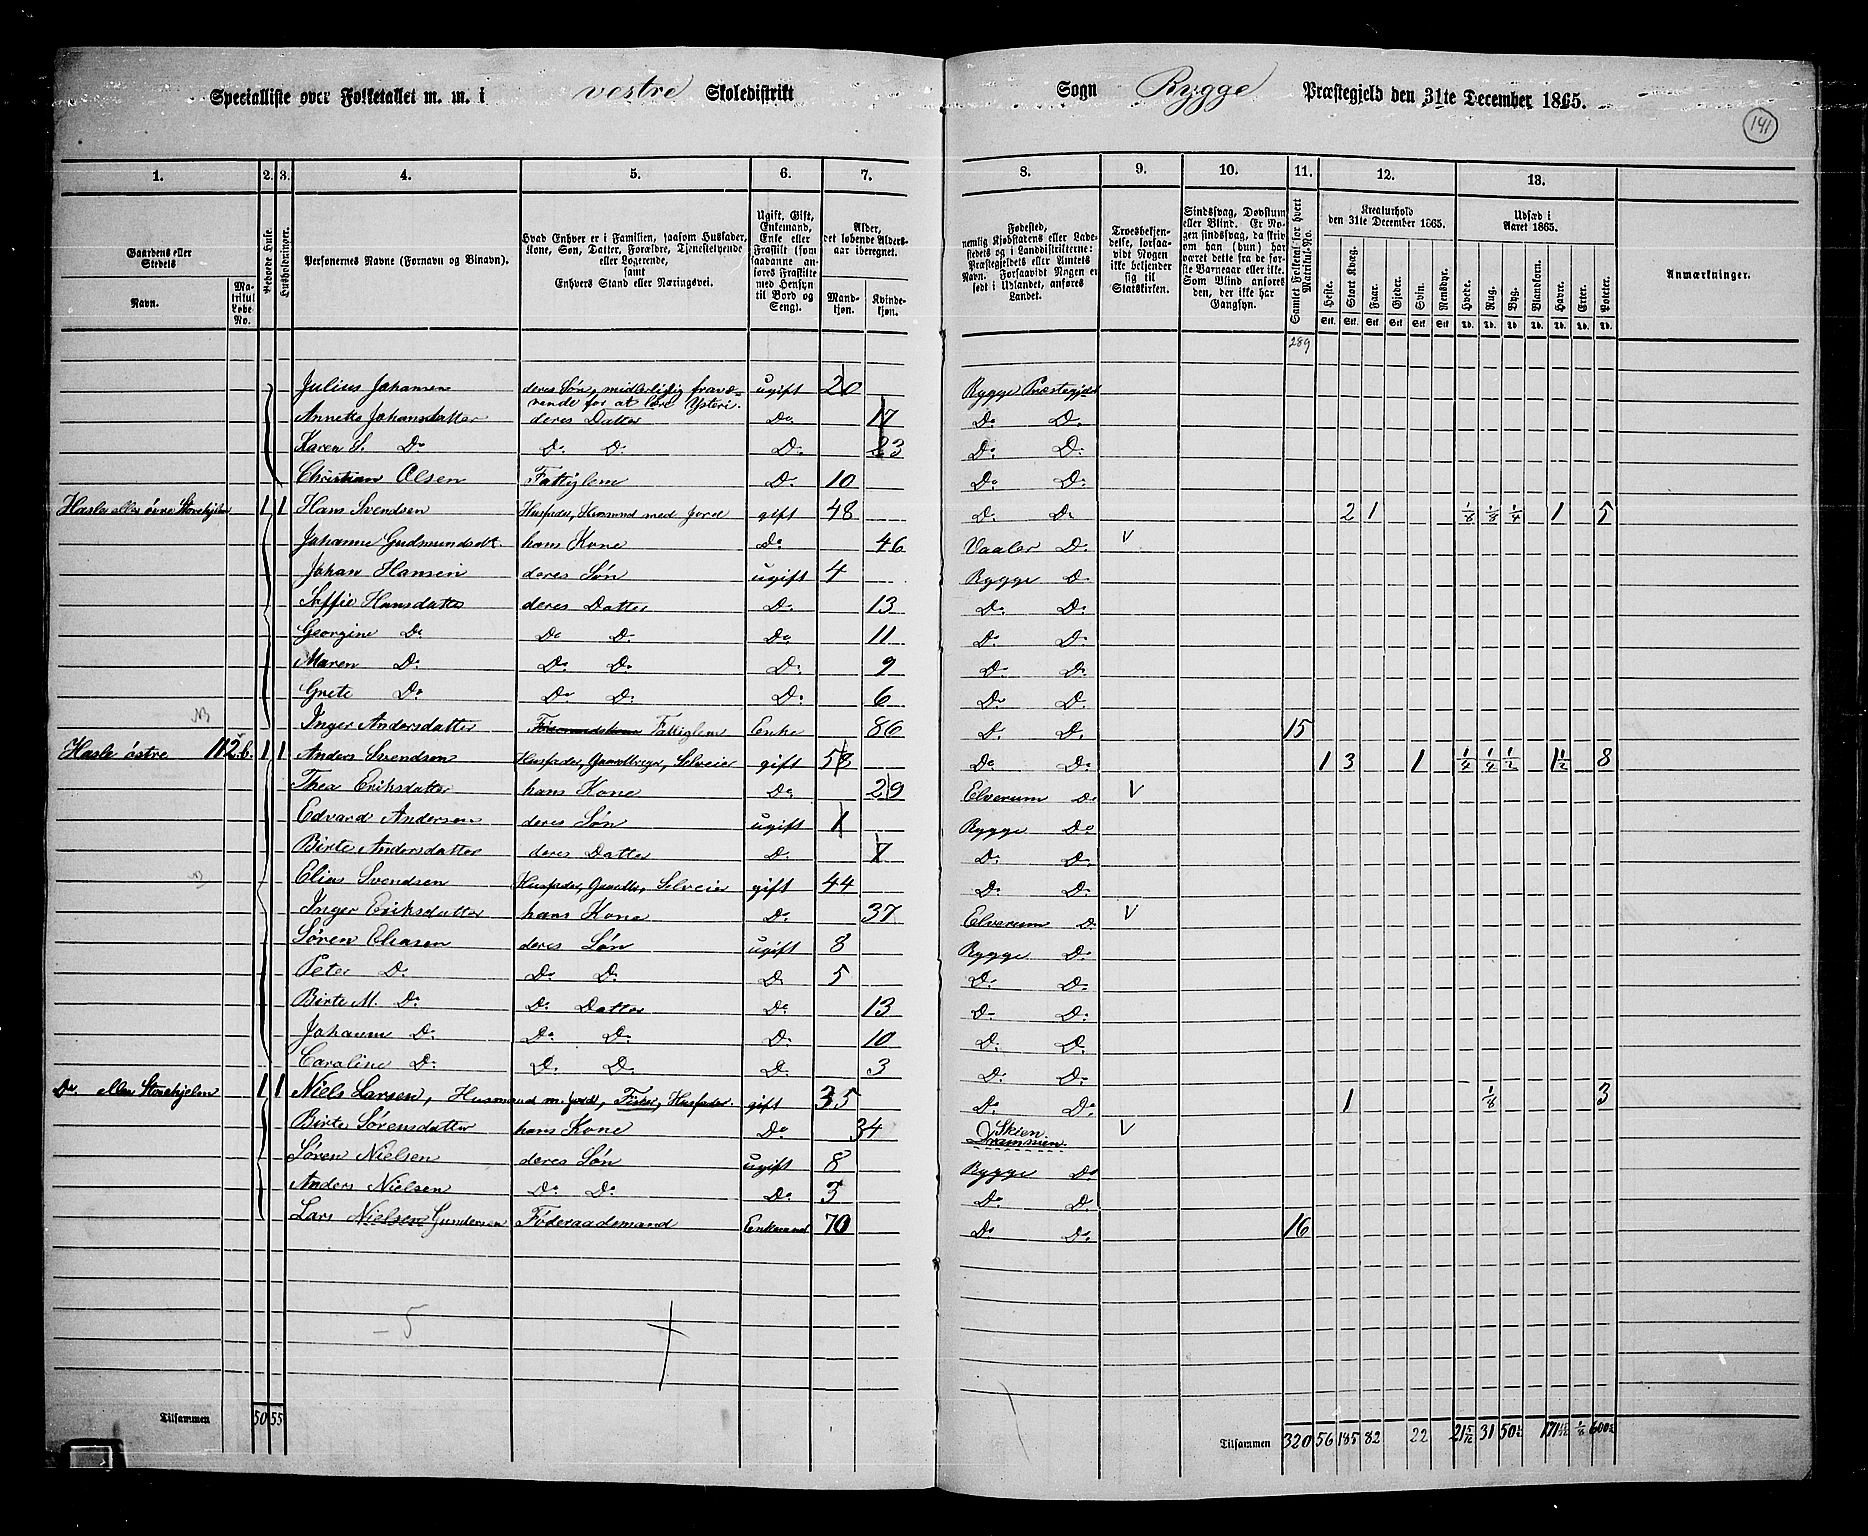 Specialliste over Folketallet m. m. i vestre Skoledistrikt Sogn Rygge Præstegjeld den 31te December 1865.
141
1. 2. 3. 4. 5. 6. 7. 8. 9. 10. 11. 12. 13.
Gaardens eller Stedets
Navn.
Matrikul Løbe No.
Beboede Huse.
Husholdninger.
Personernes Navne (Fornavn og Binavn).
Hvad Enhver er i Familien, saasom Husfader, Kone, Søn, Datter, Forældre, Tjenestetyende eller Logerende, samt Enhvers Stand eller Næringsvei.
Ugift, Gift, Enkemand, Enke eller Fraskilt (som saadanne anføres Fraskilte med Hensyn til Bord og Seng).
Alder, det løbende Aldersaar iberegnet.
Mandkjøn. Kvindekjøn.
Fødested, nemlig Kjøbstadens eller Ladestedets og i Landdistrikterne: Præstegjeldets eller Amtets Navn. Forsaavidt Nogen er født i Udlandet, anføres Landet.
Troesbekjendelse, forsaavidt Nogen ikke bekjender sig til Statskirken.
Sindssvag, Døvstum eller Blind. Er Nogen sindssvag, da skriv om han (hun) har været dette fra de første Barneaar eller ikke. Som Blind anføres den, der ikke har Gangsyn.
Samlet Folketal for hvert Matrikul-No.
Kreaturhold den 31te December 1865.
Heste. Stort Kvæg. Faar. Gjeder. Svin. Rensdyr.
Udsæd i Aaret 1865.
Hvede. Rug. Byg. Blandkorn. Havre. Erter. Poteter.
Anmærkninger.
289
Julius Johansen deres Søn, midlertidig fraværende for at lære Ysteri. ugift 20 Rygge Præstegjeld
Annette Johansdatter deres Datter Do 17 Do Do
Karen S. Do Do Do Do 23 Do Do
Christian Olsen Fattiglem Do 10 Do Do
Hasle eller øvre Stonehjelm 1 1 Hans Svendsen Husfader, Husmand med Jord gift 48 Do Do 2 1 1/8 1/8 1/4 1 5
Johanne Gudmundsdt. hans Kone Do 46 Vaaler Do V
Johan Hansen deres Søn ugift 4 Rygge Do
Soffie Hansdatter deres Datter Do 13 Do Do
Georgine Do Do Do Do 11 Do Do
Maren Do Do Do Do 9 Do Do
Grete Do Do Do Do 6 Do Do
NB Inger Andersdatter Fattiglem Enke 86 Do Do 15
Hasle østre 112b. 1 1 Anders Svendsen Husfader, Gaardbruger, Selveier gift 58 Do Do 1 3 1 1/4 1/4 1/2 1 1/2 8
Thea Eriksdatter hans Kone Do 29 Elverum Do V
Edvard Andersen deres Søn ugift 1 Rygge Do
Birte Andersdatter deres Datter Do 7 Do Do
NB Elias Svendsen Husfader, Gaardb., Selveier gift 44 Do Do
Inger Eriksdatter hans Kone Do 37 Elverum Do V
Søren Eliasen deres Søn ugift 8 Rygge Do
Peter Do Do Do Do 5 Do Do
Birte M. Do Do Datter Do 13 Do Do
Johanne Do Do Do Do 10 Do Do
Caroline Do Do Do Do 3 Do Do
Do eller Stonehjelm 1 1 Niels Larsen, Husmand m. Jord, Fisker, Husfader. gift 35 Do Do 1 1/8 3
Birte Sørensdatter hans Kone Do 34 Skien Drammen. V
Søren Nielsen deres Søn ugift 8 Rygge Do
Anders Nielsen Do Do Do 3 Do Do
Lars Nielsen Gundersen Føderaadsmand Enkemand 70 Do Do 16
- 5
Tilsammen 50 55 Tilsammen 320 56 185 82 22 31